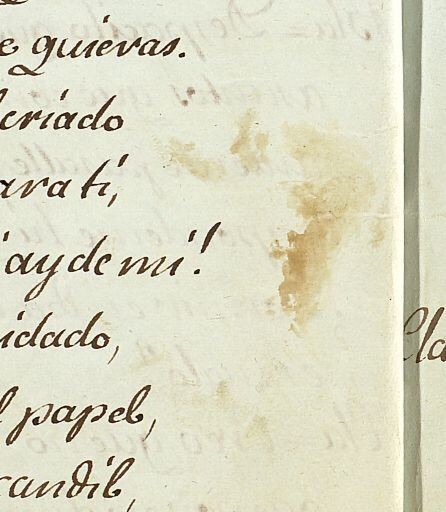 e quieras.
criado
ara ti,
¡ay de mi!
idado,
l papel,
candil,
Cla